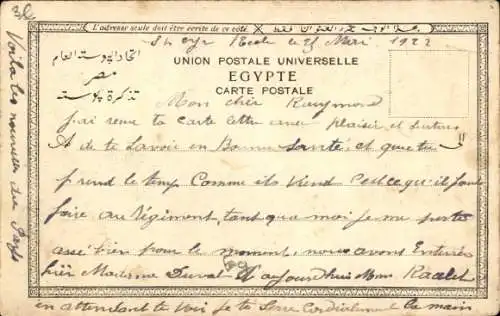 L'adresse seule doit être écrite de ce côté.
St Cyr l'Ecole le 25 Mai 1922
اتحاد البوستة العام
مصر
تذكرة بوستة
UNION POSTALE UNIVERSELLE
EGYPTE
CARTE POSTALE
Mon cher Raymond
j'ai reçu ta carte lettre avec plaisir et surtout
de te savoir en Bonne Santé et que tu
prend le temp Comme ils vient c'est ce qu'il faut
faire au Régiment, tant qua moi je me porte
assé bien pour le moment, nous avons Enterrés
hièr Madame Duval et aujourdhuis Mme
en attendant te voir je te Serre Cordialement la main
Voila les nouvelles du Pays